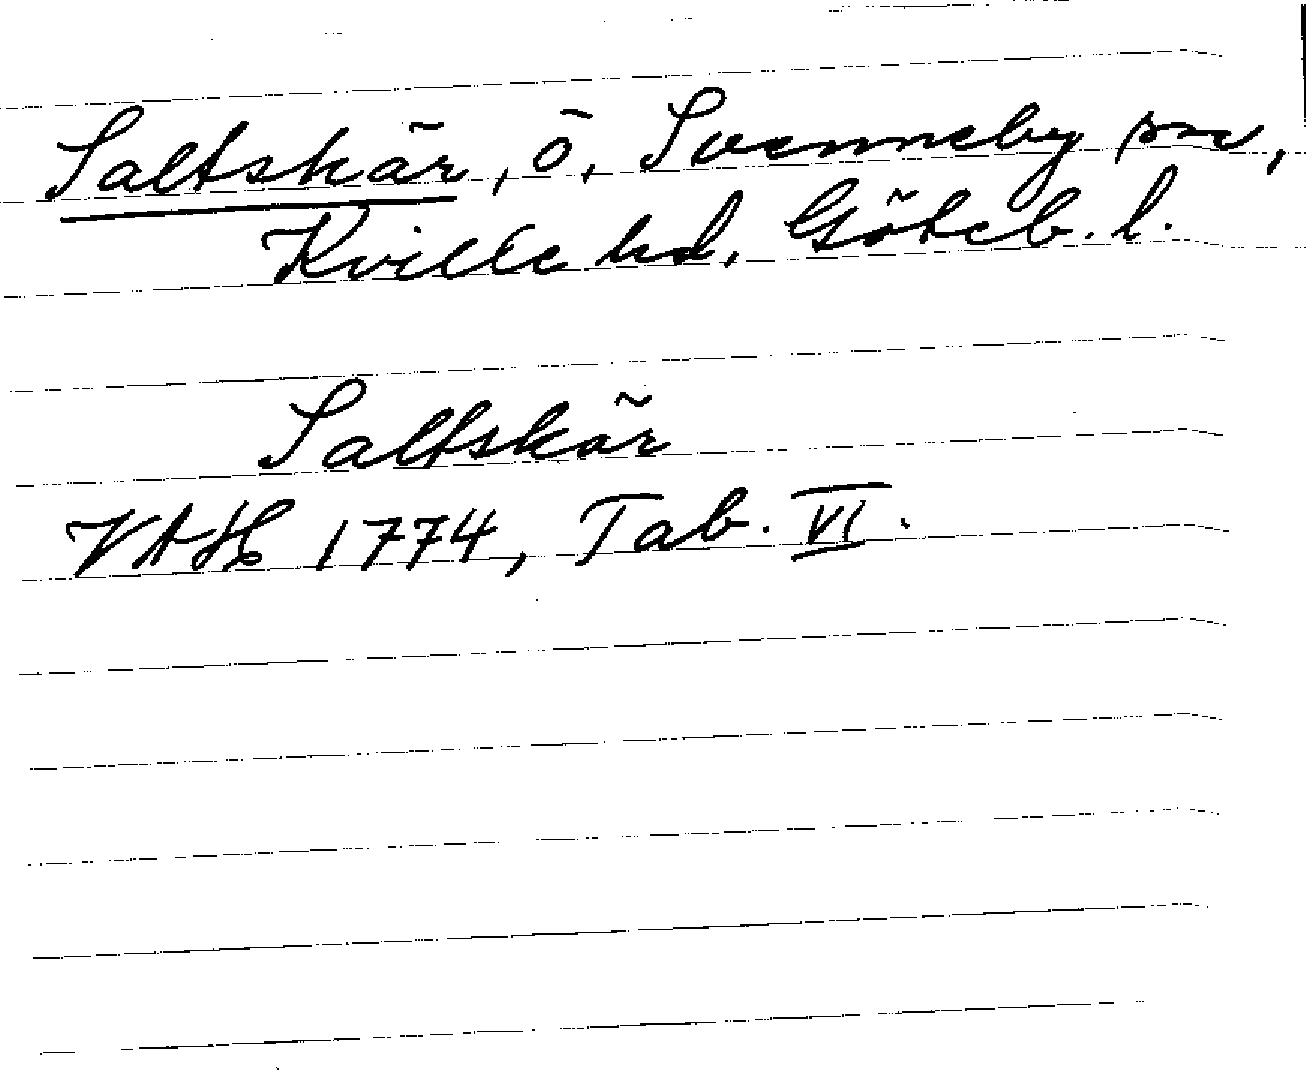 Saltskär, ö, Svenneby sn,
Kville hd, Göteb. l.
Saltskär
VAH 1774, Tab. VI.